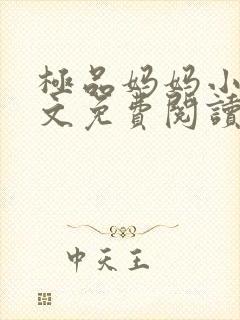 極品妈妈小
文免費閱讀
中天王